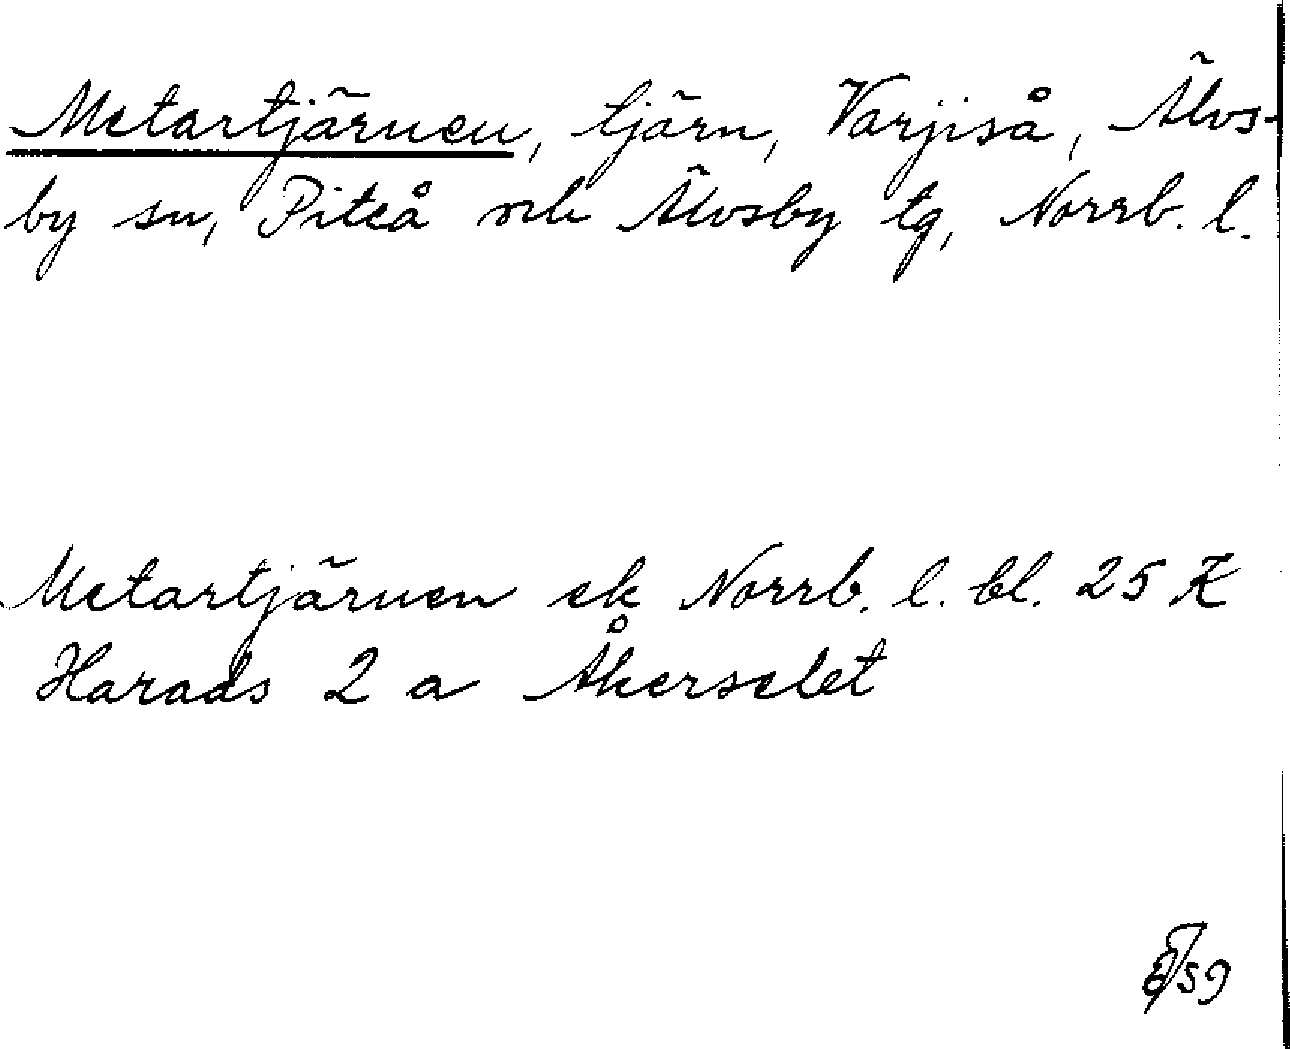 Metartjärnen, tjärn, Varjiså, Älvs-
by sn, Piteå och Älvsby tg, Norrb. l.
Metartjärnen ek Norrb. l. bl. 25 K
Harads 2 a Åkerselet